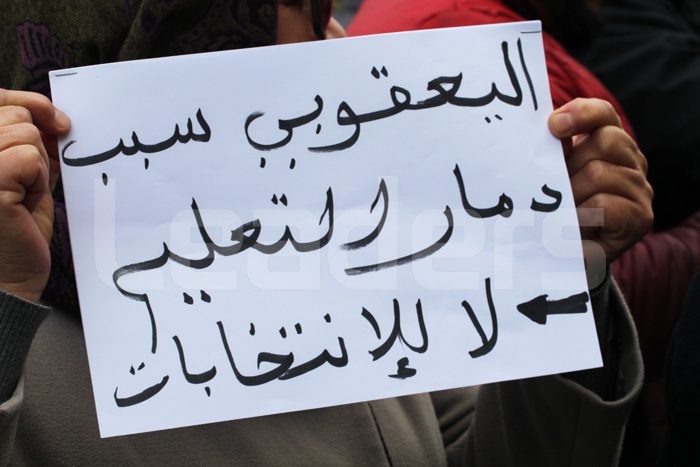 اليعقوبي سبب
دمار التعليم
لا للإنتخابات
Leaders